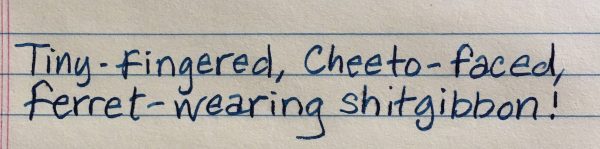 Tiny-fingered, Cheeto-faced,
ferret-wearing shitgibbon!